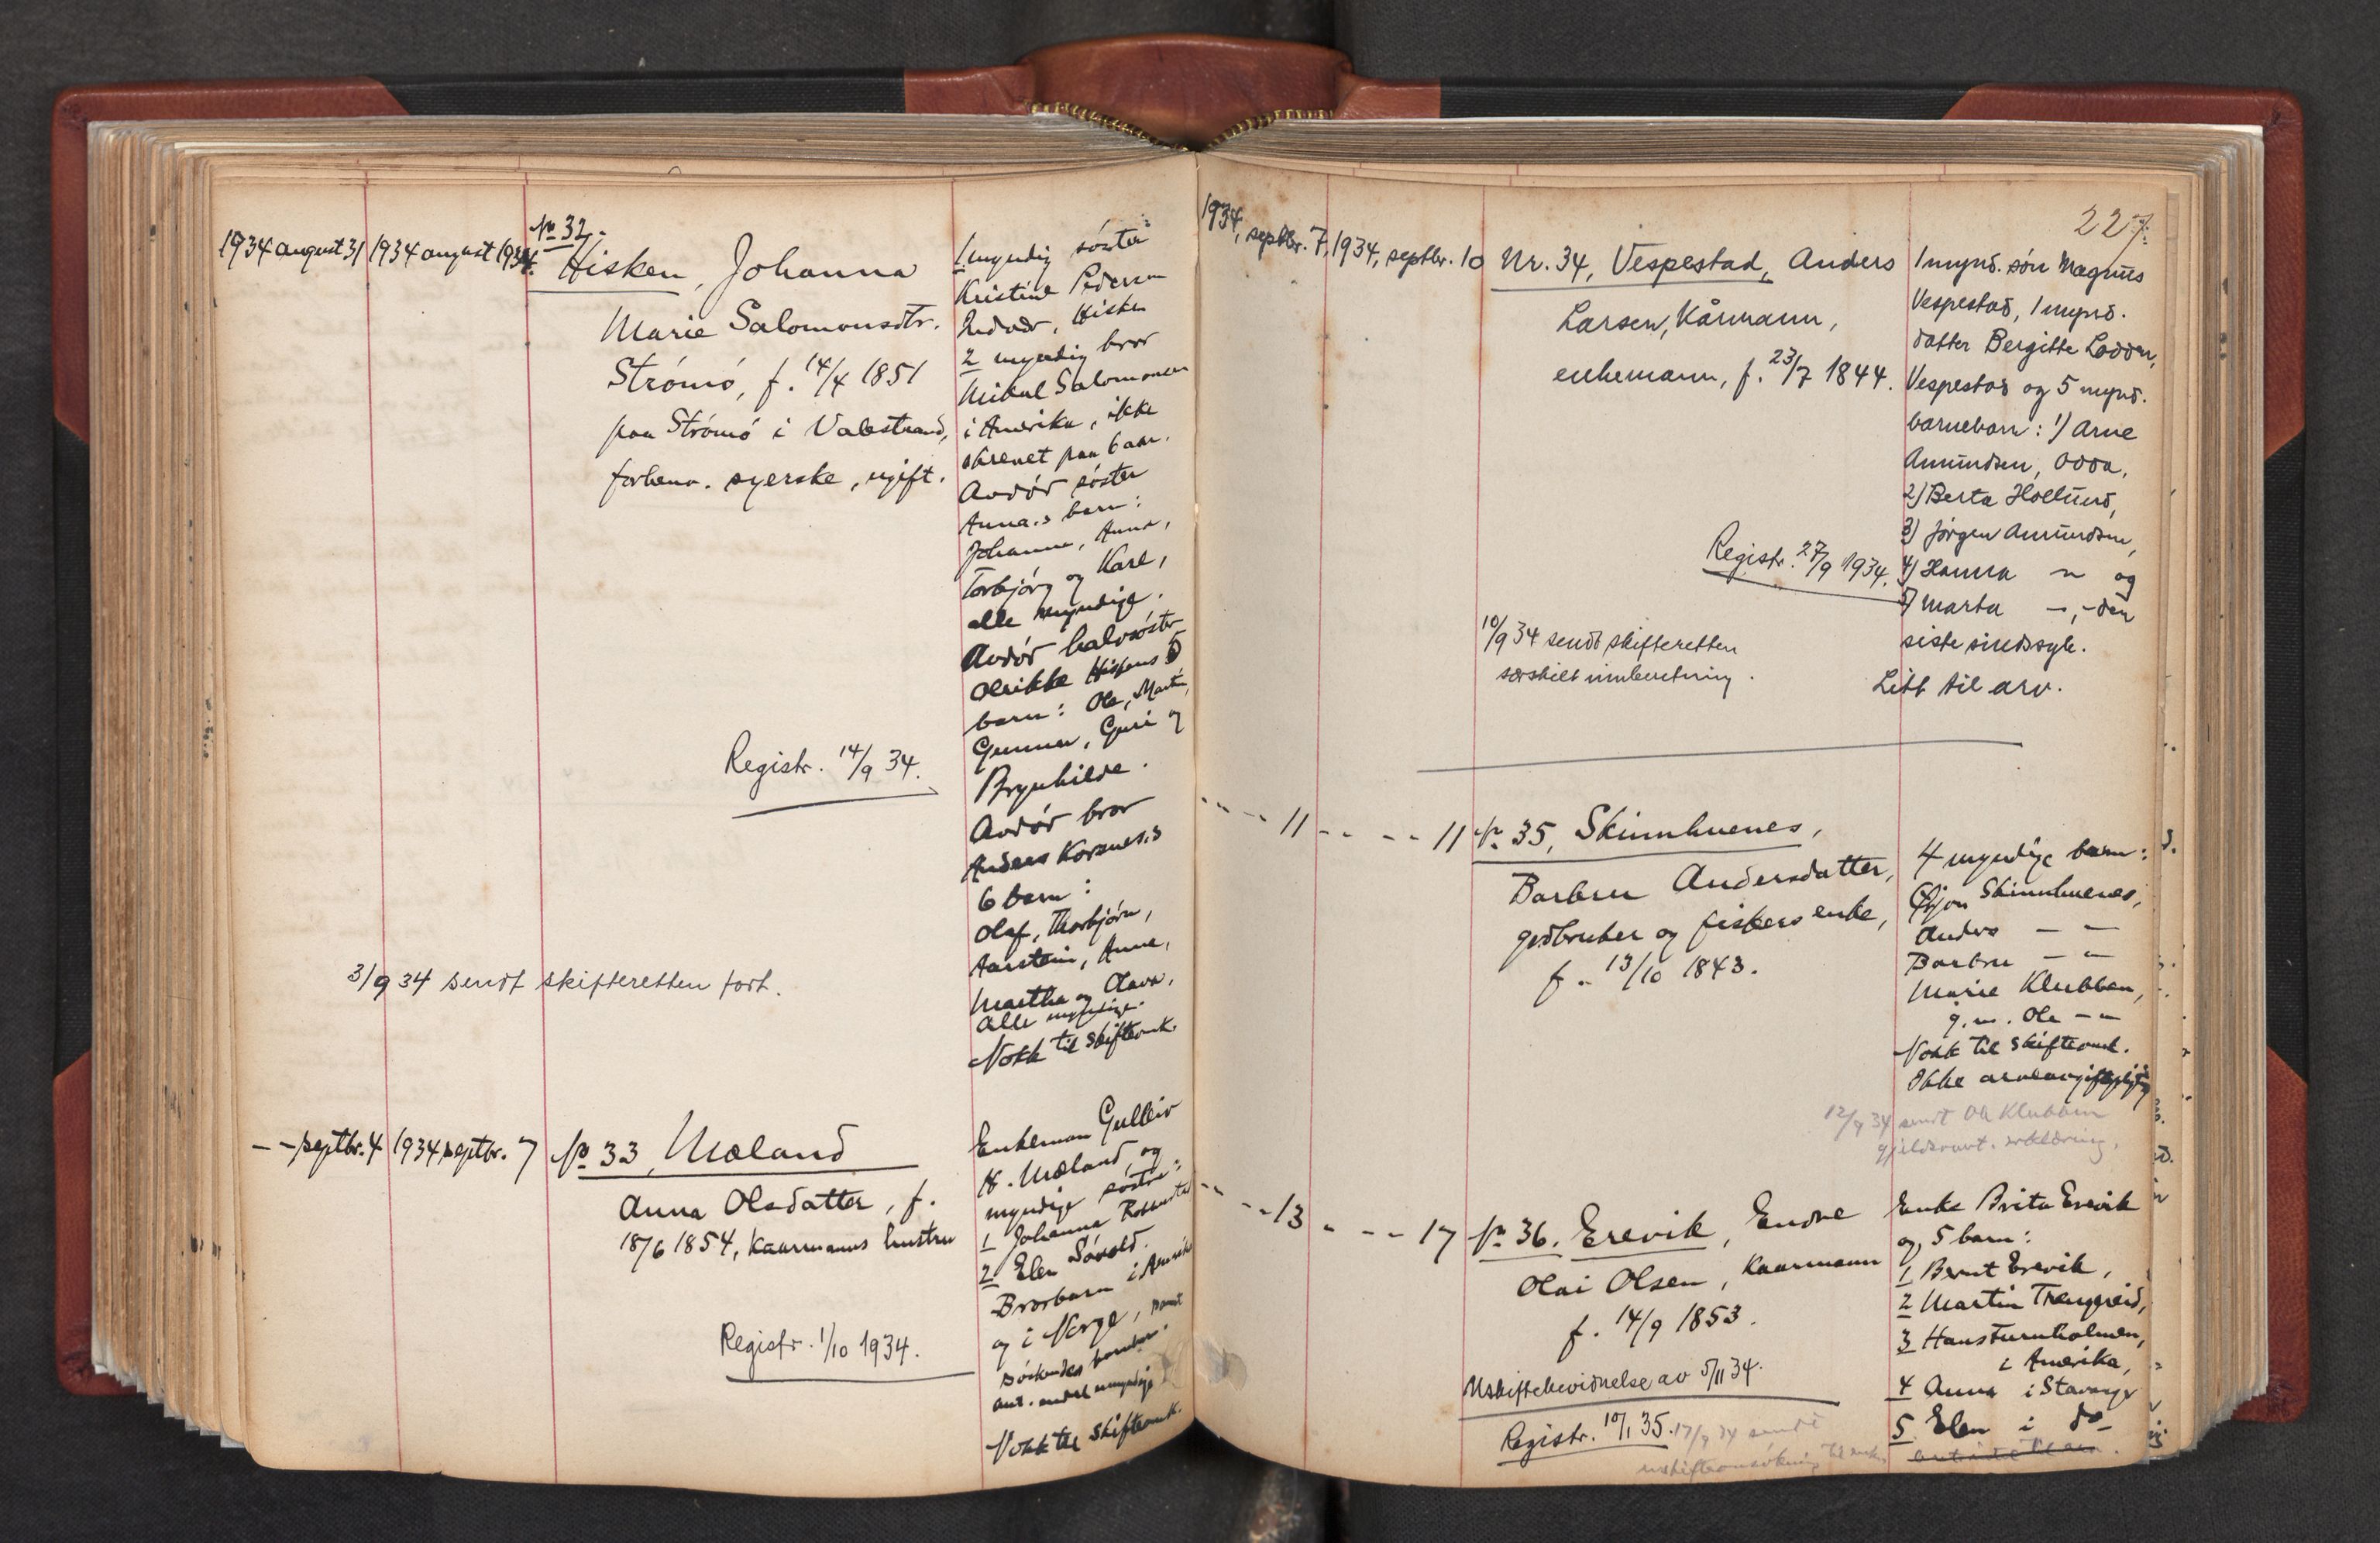 No 32.
1934 august 31 1934 august 1934. Hisken, Johanna
Marie Salomonsdtr.
Strömö, f. 14/4 1851
paa Strömö i Valestrand,
forhenv. syerske, ugift.
1 myndig söster
Kristine Pedersen
Hisken
2 myndig bror
Mikal Salomonsen
i Amerika, ikke
skrevet paa 6 aar.
Avdör söster
Anna.s barn:
Johanna, Anna,
Torbjörg og Karl,
alle myndige.
Avdör halvsöster
Olrikke Hiskens 5
barn: Ole, Martin,
Gunnar, Guri og
Brynhilde.
Avdör bror
Anders Korsnes.s
6 barn:
Olaf, Thorbjörn,
Aarstein, Anna,
Martha og Olava.
Alle myndige.
Nokk til skifteomk.
Registr. 14/9 34.
3/9 34 sendt skifteretten fort.
- - septbr. 4 1934 septbr. 7 No 33, Mæland
Anna Olsdatter, f.
18/6 1854, Kaarmanns hustru
Enkeman Gulleiv
K. Mæland, og
myndige søstre:
1 Johanna
2 Elen Såvold.
Brorbarn i Amerika
og i Norge, samt
Nokk til skifteomk.
Registr. 1/10 1934.
227.
1934, septbr. 7, 1934, septbr. 10 Nr. 34, Vespestad, Anders
Larsen, Kårmann,
enkemann, f. 23/7 1844.
1 mynd. søn Magnus
Vespestad, 1 mynd.
datter Bergitte Lodden,
Vespestad og 5 mynd.
barnebarn: 1) Arne
Amundsen, Odda,
2) Berta Hollund,
3) Jørgen Amundsen,
4) Hanna — " — og
5) Marta — " — den
siste sindssyk.
Litt til arv.
Registr. 27/9 1934.
10/9 34 sendt skifteretten
særskilt innberetning.
- - - 11 - - - - 11 No 35, Skimmhuenes,
Barbru Andersdatter,
grdbruker og fiskers enke,
f. 13/10 1843.
4 myndige barn:
Skimmhuenes,
Anders — " —
Barbru — " —
Marie Klubben,
g. m. Ole — " —
Nokk til skifteomk.
Ikke arveavgiftspligtig
12/9 34 sendt Ole Klubben
- - - 13 - - - 17 No 36. Erevik, Endre
Olai Olsen, Kaarmann
f. 14/9 1853.
Enke Brita Erevik
og 5 barn:
1 Bernt Erevik,
2 Martin Trengereid,
3 Hans Turnholmen,
i Amerika,
4 Anna i Stavanger
5 Elen i do
Uskiftebevidnelse av 5/11 34.
Registr. 10/1 35. 17/9 34 sendt
uskifteansökning til enken